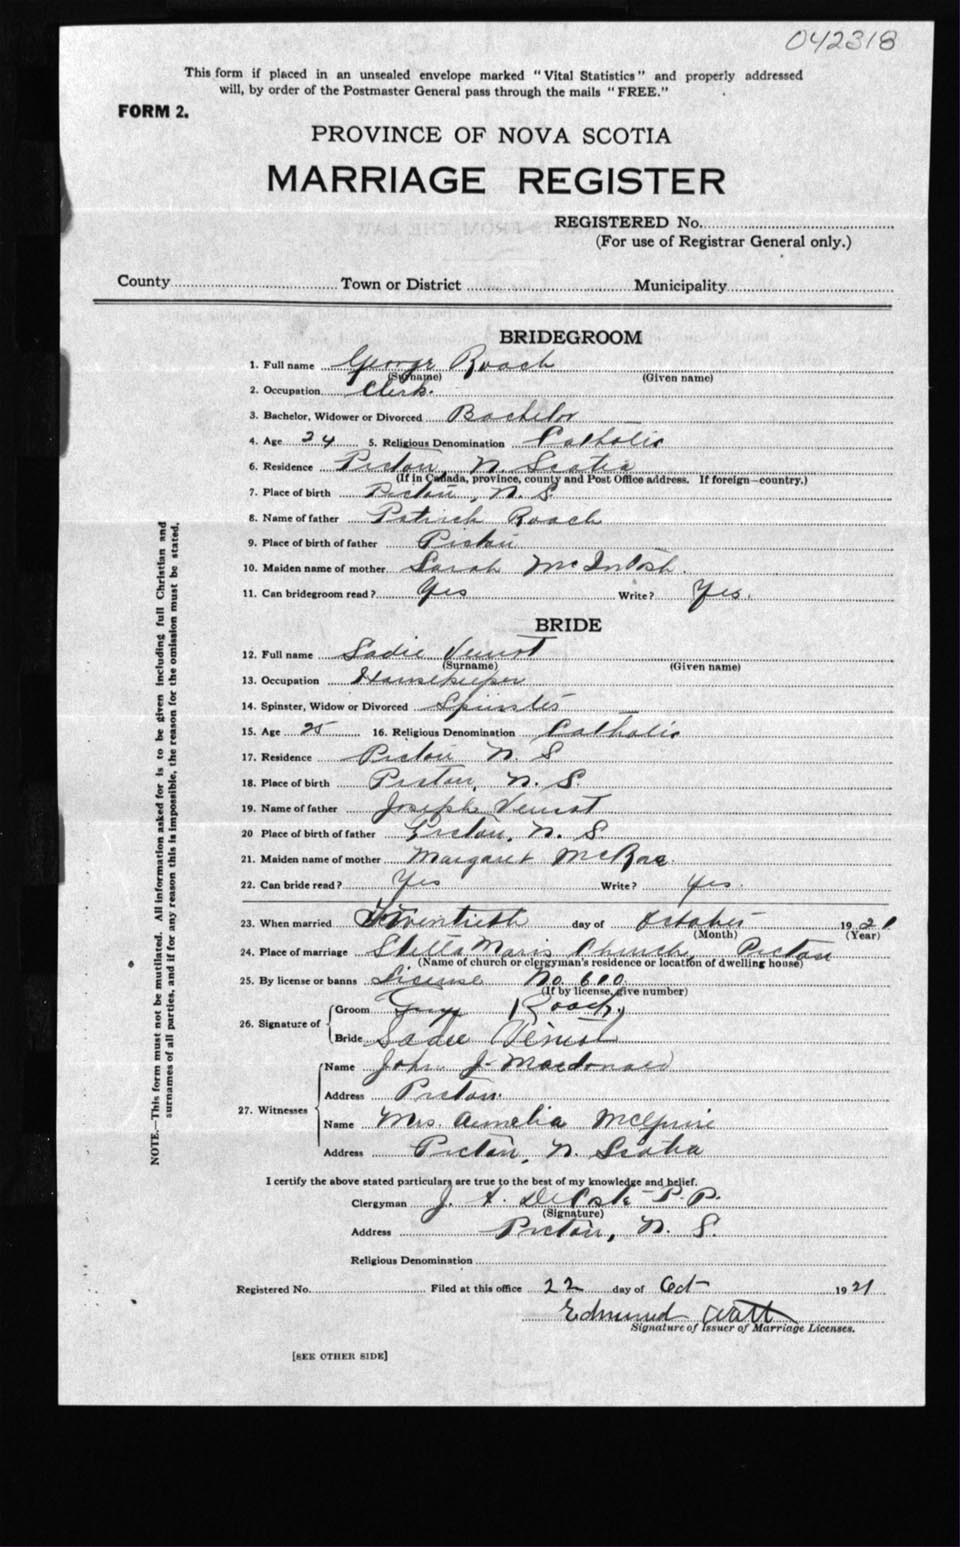 042318
This form if placed in an unsealed envelope marked "Vital Statistics" and properly addressed
will, by order of the Postmaster General pass through the mails "FREE."
FORM 2.
PROVINCE OF NOVA SCOTIA
MARRIAGE REGISTER
REGISTERED No.
(For use of Registrar General only.)
County Town or District Municipality
BRIDEGROOM
1. Full name George Roach
(Surname) (Given name)
2. Occupation Clerk.
3. Bachelor, Widower or Divorced Bachelor
4. Age 24 5. Religious Denomination Catholic
6. Residence Pictou, N. Scotia
(If in Canada, province, county and Post Office address. If foreign—country.)
7. Place of birth Pictou, N. S.
8. Name of father Patrick Roach
9. Place of birth of father Pictou
10. Maiden name of mother Sarah McIntosh.
11. Can bridegroom read? Yes Write? Yes.
BRIDE
12. Full name Sadie Veniot
(Surname) (Given name)
13. Occupation Housekeeper
14. Spinster, Widow or Divorced Spinster
15. Age 25 16. Religious Denomination Catholic
17. Residence Pictou N. S
18. Place of birth Pictou, N. S.
19. Name of father Joseph Veniot
20 Place of birth of father Pictou, N. S.
21. Maiden name of mother Margaret McRae.
22. Can bride read? Yes Write? Yes.
23. When married Twentieth day of October 1921
(Month) (Year)
24. Place of marriage Stella Maris Church, Pictou
(Name of church or clergyman's residence or location of dwelling house)
25. By license or banns License No. 610
(If by license, give number)
26. Signature of Groom Roach
Bride Sadie Veniot
27. Witnesses Name John J. Macdonald
Address Pictou.
Name Mrs. Aumelia McGuire
Address Pictou, N. Scotia
I certify the above stated particulars are true to the best of my knowledge and belief.
Clergyman J. A. DeCoste P. P.
(Signature)
Address Pictou, N. S.
Religious Denomination
Registered No. Filed at this office 22 day of Oct 1921
Edmund Watt
Signature of Issuer of Marriage Licenses.
[SEE OTHER SIDE]
NOTE.—This form must not be mutilated. All information asked for is to be given including full Christian and
surnames of all parties, and if for any reason this is impossible, the reason for the omission must be stated.